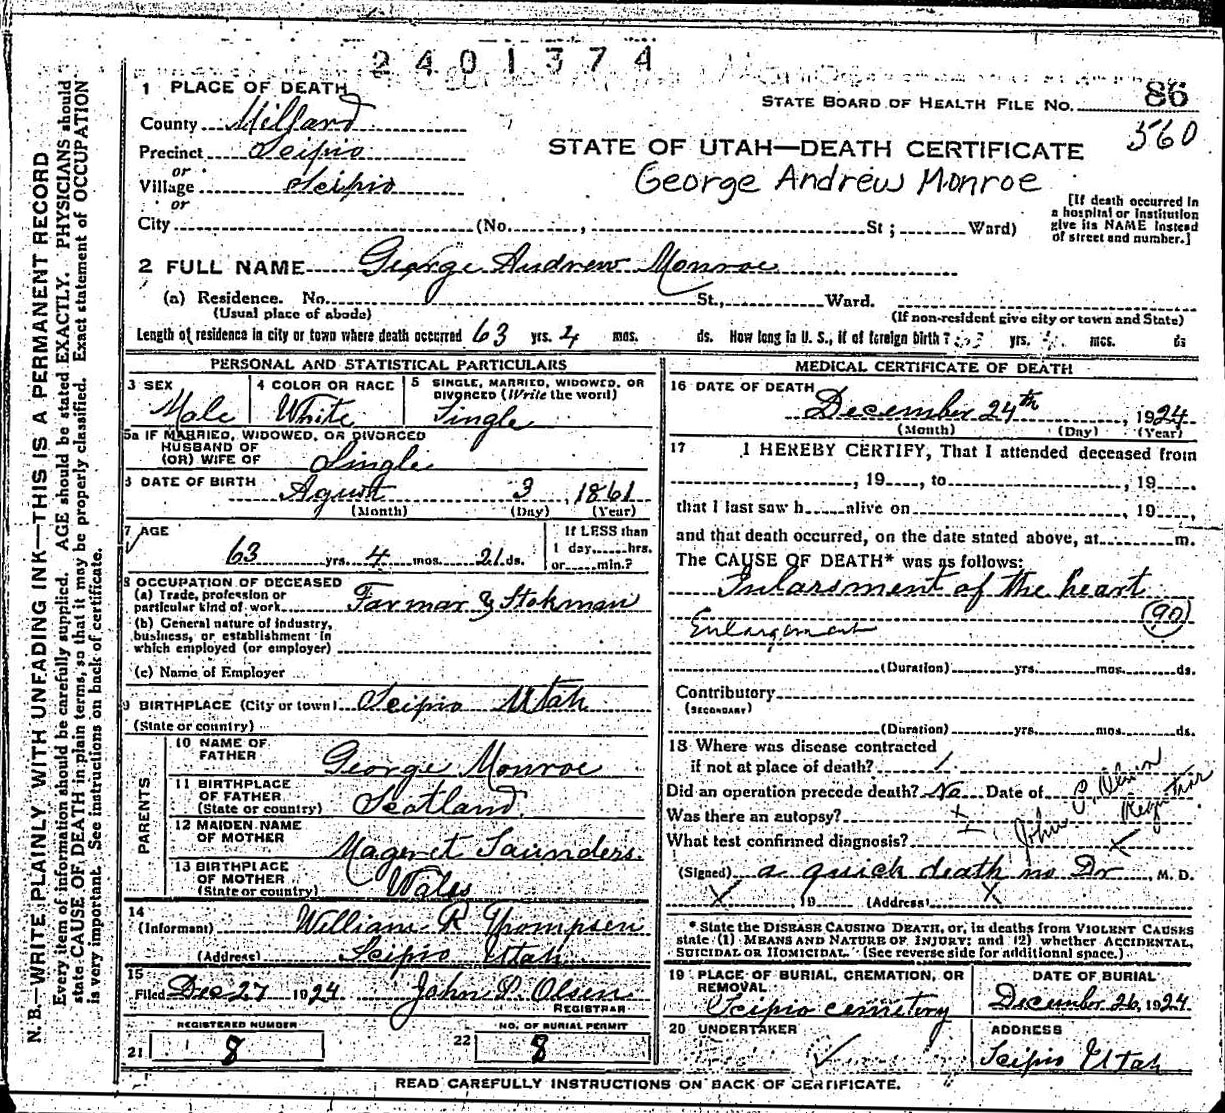 2401374
1 PLACE OF DEATH
STATE BOARD OF HEALTH FILE NO. 86
560
County Millard
Precinct Scipio
or
Village Scipio
or
STATE OF UTAH—DEATH CERTIFICATE
George Andrew Monroe
[If death occurred in a hospital or institution give its NAME instead of street and number.]
City (No. , St ; Ward)
2 FULL NAME George Andrew Monroe
(a) Residence. No. St., Ward.
(Usual place of abode) (If non-resident give city or town and State)
Length of residence in city or town where death occurred 63 yrs. 4 mos. ds. How long in U. S., if of foreign birth? yrs. mos. ds
PERSONAL AND STATISTICAL PARTICULARS
3 SEX
Male
4 COLOR OR RACE
White
5 SINGLE, MARRIED, WIDOWED, OR DIVORCED (Write the word)
Single
5a IF MARRIED, WIDOWED, OR DIVORCED
HUSBAND OF
(OR) WIFE OF Single
6 DATE OF BIRTH Agust 3 1861
(Month) (Day) (Year)
7 AGE
63 yrs. 4 mos. 21 ds.
If LESS than
1 day, hrs.
or min.?
8 OCCUPATION OF DECEASED
(a) Trade, profession or
particular kind of work Farmar & Stokman
(b) General nature of industry,
business, or establishment in
which employed (or employer)
(c) Name of Employer
9 BIRTHPLACE (City or town) Scipio Utah
(State or country)
PARENTS
10 NAME OF
FATHER George Monroe
11 BIRTHPLACE
OF FATHER
(State or country) Scotland
12 MAIDEN NAME
OF MOTHER Mageret Saunders.
13 BIRTHPLACE
OF MOTHER
(State or country) Wales
14
(Informant) William R Thompson
(Address) Scipio Utah
15
Filed Dec 27 1924 John P. Olsen
REGISTRAR
REGISTERED NUMBER
21 8
NO. OF BURIAL PERMIT
22 8
MEDICAL CERTIFICATE OF DEATH
16 DATE OF DEATH
December 24th, 1924
(Month) (Day) (Year)
17 I HEREBY CERTIFY, That I attended deceased from
, 19 , to , 19 .
that I last saw h alive on , 19 ,
and that death occurred, on the date stated above, at m.
The CAUSE OF DEATH* was as follows:
Inlarsment of the heart
(90)
Enlargement
(Duration) yrs. mos. ds.
Contributory
(SECONDARY)
(Duration) yrs. mos. ds.
18 Where was disease contracted
if not at place of death?
Did an operation precede death? No Date of
Was there an autopsy? x
What test confirmed diagnosis? x John P. Olsen Registrar x
(Signed) a quick death no Dr , M. D.
x , 19 (Address) x
* State the DISEASE CAUSING DEATH, or, in deaths from VIOLENT CAUSES
state (1) MEANS AND NATURE OF INJURY; and (2) whether ACCIDENTAL,
SUICIDAL or HOMICIDAL. (See reverse side for additional space.)
19 PLACE OF BURIAL, CREMATION, OR
REMOVAL
Scipio cemetery
DATE OF BURIAL
December 26, 1924
20 UNDERTAKER
ADDRESS
Scipio Utah
READ CAREFULLY INSTRUCTIONS ON BACK OF CERTIFICATE.
N. B.—WRITE PLAINLY WITH UNFADING INK—THIS IS A PERMANENT RECORD
Every item of information should be carefully supplied. AGE should be stated EXACTLY. PHYSICIANS should
state CAUSE OF DEATH in plain terms, so that it may be properly classified. Exact statement of OCCUPATION
is very important. See instructions on back of certificate.